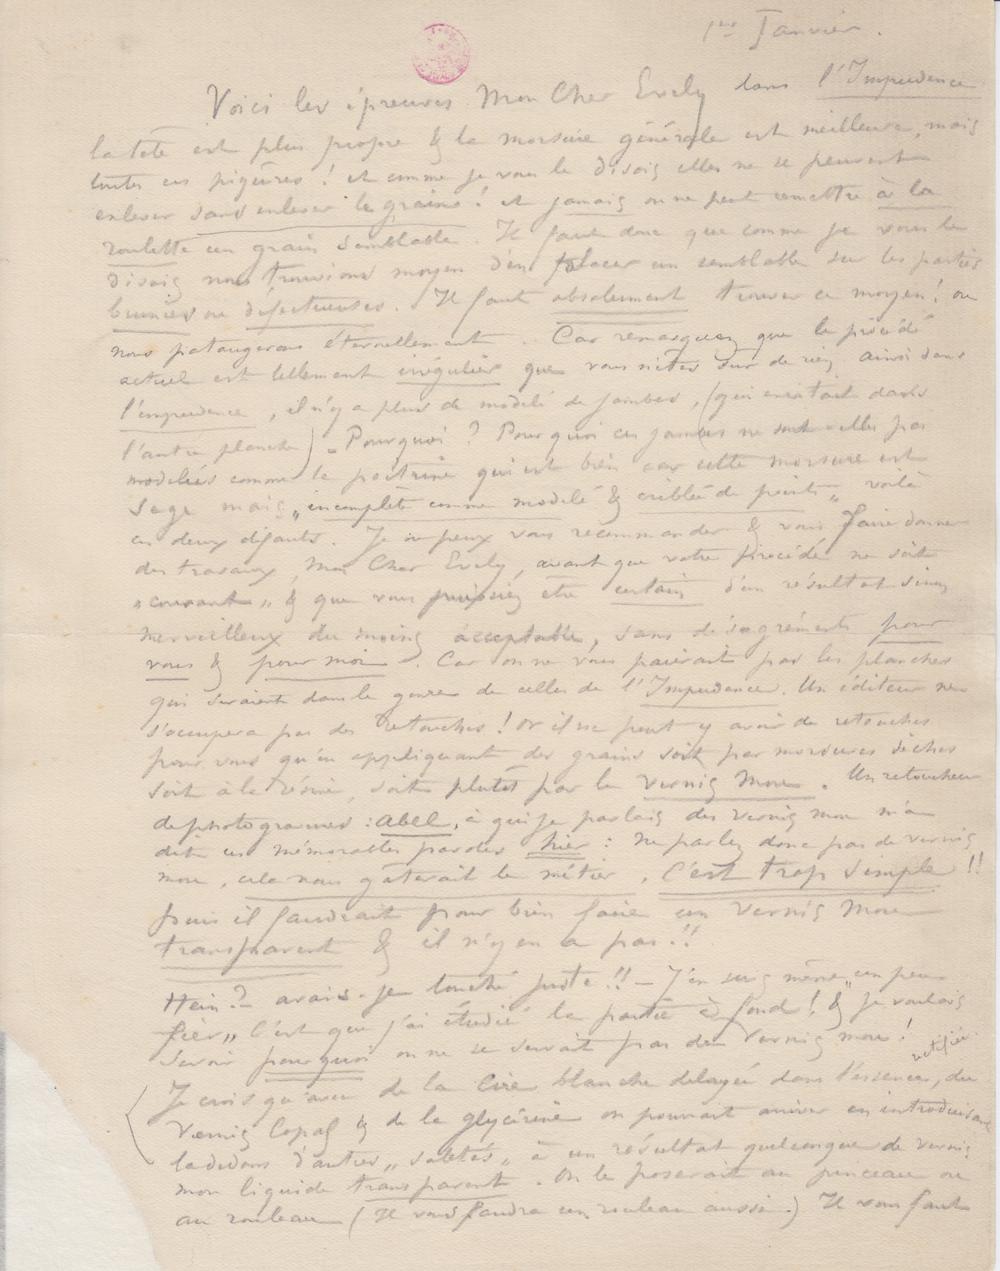 1er Janvier.
Voici les épreuves Mon Cher Evely dans l'Impudence
la tête est plus propre & la morsure générale est meilleure, mais
toutes ces piqûres ! et comme je vous le disais elles ne se peuvent
enlever sans enlever le grain ! et jamais on ne peut remettre à la
roulette un grain semblable. Il faut donc que comme je vous le
disais nous trouvions moyen d'en placer un semblable sur les parties
brunies ou défectueuses. Il faut absolument trouver ce moyen ! ou
nous pataugerons éternellement. Car remarquez que le procédé
actuel est tellement irrégulier que vous n'êtes sûr de rien, ainsi dans
l'impudence, il n'y a plus de modelé de jambes, (qui existait dans
l'autre planche). Pourquoi ? Pourquoi ces jambes ne sont-elles pas
modelées comme la poitrine qui est bien car cette morsure est
sage mais „incomplète comme modelé & criblée de points„ voilà
ces deux défauts. Je ne peux vous recommander & vous faire donner
des travaux, Mon Cher Evely, avant que votre procédé ne soit
„courant„ & que vous puissiez être certain d'un résultat sinon
merveilleux du moins acceptable, sans désagréments pour
vous & pour moi. Car on ne vous paierait pas les planches
qui seraient dans le genre de celles de l'Impudence. Un éditeur ne
s'occupera pas des retouches ! Or il ne peut y avoir de retouches
pour vous qu'en appliquant des grains soit par morsures sèches
soit à la résine, soit plutôt par le vernis mou. Un retoucheur
de photogravures : Abel, à qui je parlais du vernis mou m'a
dit ces mémorables paroles hier : ne parlez donc pas de vernis
mou, cela nous gâterait le métier. C'est trop simple !!
puis il faudrait pour bien faire un Vernis Mou
transparent & il n'y en a pas !!
Hein ? avais-je touché juste !! — J'en suis même „un peu
fier„ C'est que j'ai étudié la partie à fond ! & je voulais
savoir pourquoi on ne se servait pas du Vernis mou !
rectifiée
Je crois qu'avec de la Cire blanche délayée dans l'essence, du
Vernis Copal & de la glycérine on pourrait arriver en introduisant
là dedans d'autres „saletés„ à un résultat quelconque de vernis
mou liquide transparent. On le poserait au pinceau ou
au rouleau (Il vous faudra un rouleau aussi.) Il vous faut